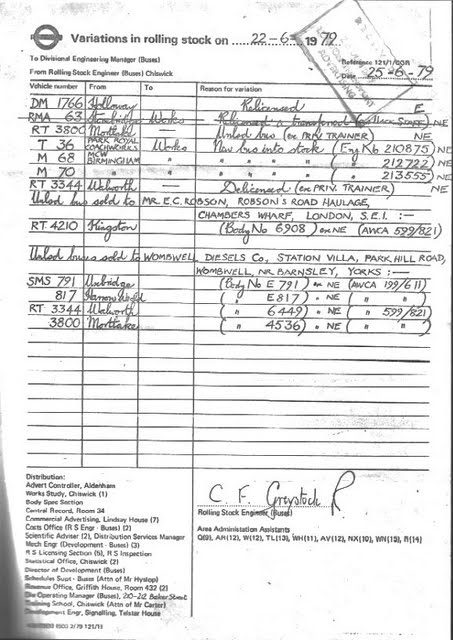 Variations in rolling stock on 22-6- 1979
To Divisional Engineering Manager (Buses)
Reference 121/1/COR
From Rolling Stock Engineer (Buses) Chiswick
Date 25-6-79
Vehicle number From To Reason for variation
DM 1766 Holloway Relicensed E
RMA 63 Stonebridge Works Relicensed & transferred NE
RT 3800 Mortlake Unlsd bus (ex PRIV. TRAINER) NE
T 36 PARK ROYAL COACHWORKS Works New bus into stock (Eng No 210875) NE
M 68 MCW BIRMINGHAM " " " " ( " 212722) NE
M 70 " " " " " ( " 213555) NE
RT 3344 Walworth — Delicensed (ex PRIV. TRAINER) NE
Unlsd bus sold to MR. E.C. ROBSON, ROBSON'S ROAD HAULAGE,
CHAMBERS WHARF, LONDON, S.E.1. :—
RT 4210 Kingston (Body No 6908) ex NE (AWCA 599/821)
Unlsd buses sold to WOMBWELL DIESELS Co, STATION VILLA, PARK HILL ROAD,
WOMBWELL, NR. BARNSLEY, YORKS :—
SMS 791 Uxbridge (Body No E 791) ex NE (AWCA 199/611)
817 Harrow Weald ( " E817) " NE ( " " )
RT 3344 Walworth ( " 6449) " NE ( " 599/821)
3800 Mortlake ( " 4536) " NE ( " " )
Distribution:
Advert Controller, Aldenham
Works Study, Chiswick (1)
Body Spec Section
Central Record, Room 34
Commercial Advertising, Lindsay House (7)
Costs Office (R S Engr - Buses) (2)
Scientific Adviser (2), Distribution Services Manager
Mech Engr (Development - Buses) (3)
R S Licensing Section (5), R S Inspection
Statistical Office, Chiswick (2)
Director of Development (Buses)
Schedules Supt - Buses (Attn of Mr Hyslop)
Revenue Office, Griffith House, Room 432 (2)
Operating Manager (Buses), 210-212 Baker Street
Training School, Chiswick (Attn of Mr Carter)
Engr, Signalling, Telstar House
C. F. Greystock R
Rolling Stock Engineer (Buses)
Area Administation Assistants
Q(9), AH(12), W(12), TL(13), WH(11), AV(12), NX(10), WN(15), R(14)
1500 2/79 121/11